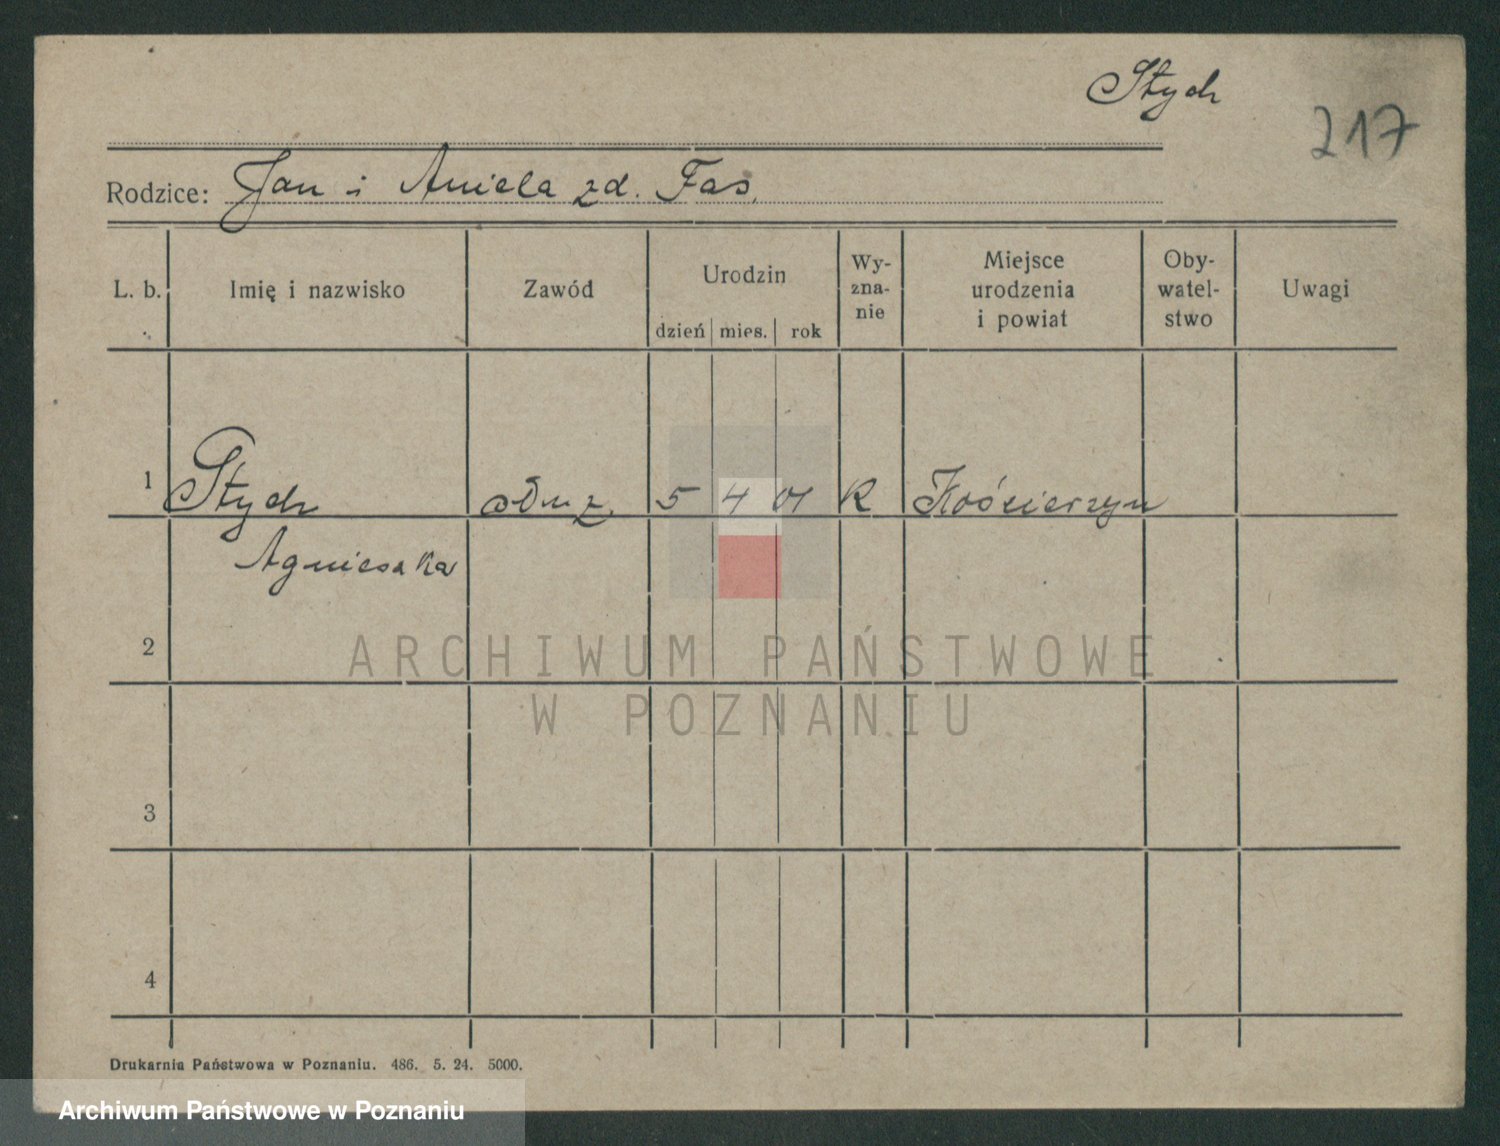 Stych
217
Rodzice: Jan i Aniela zd. Fas.
L. b. Imię i nazwisko Zawód Urodzin dzień mies. rok Wy-zna-nie Miejsce urodzenia i powiat Oby-watel-stwo Uwagi
1 Stych 5 4 01 K Kościerzyn
Agnieszka
2
ARCHIWUM PAŃSTWOWE
W POZNANIU
3
4
Drukarnia Państwowa w Poznaniu. 486. 5. 24. 5000.
Archiwum Państwowe w Poznaniu